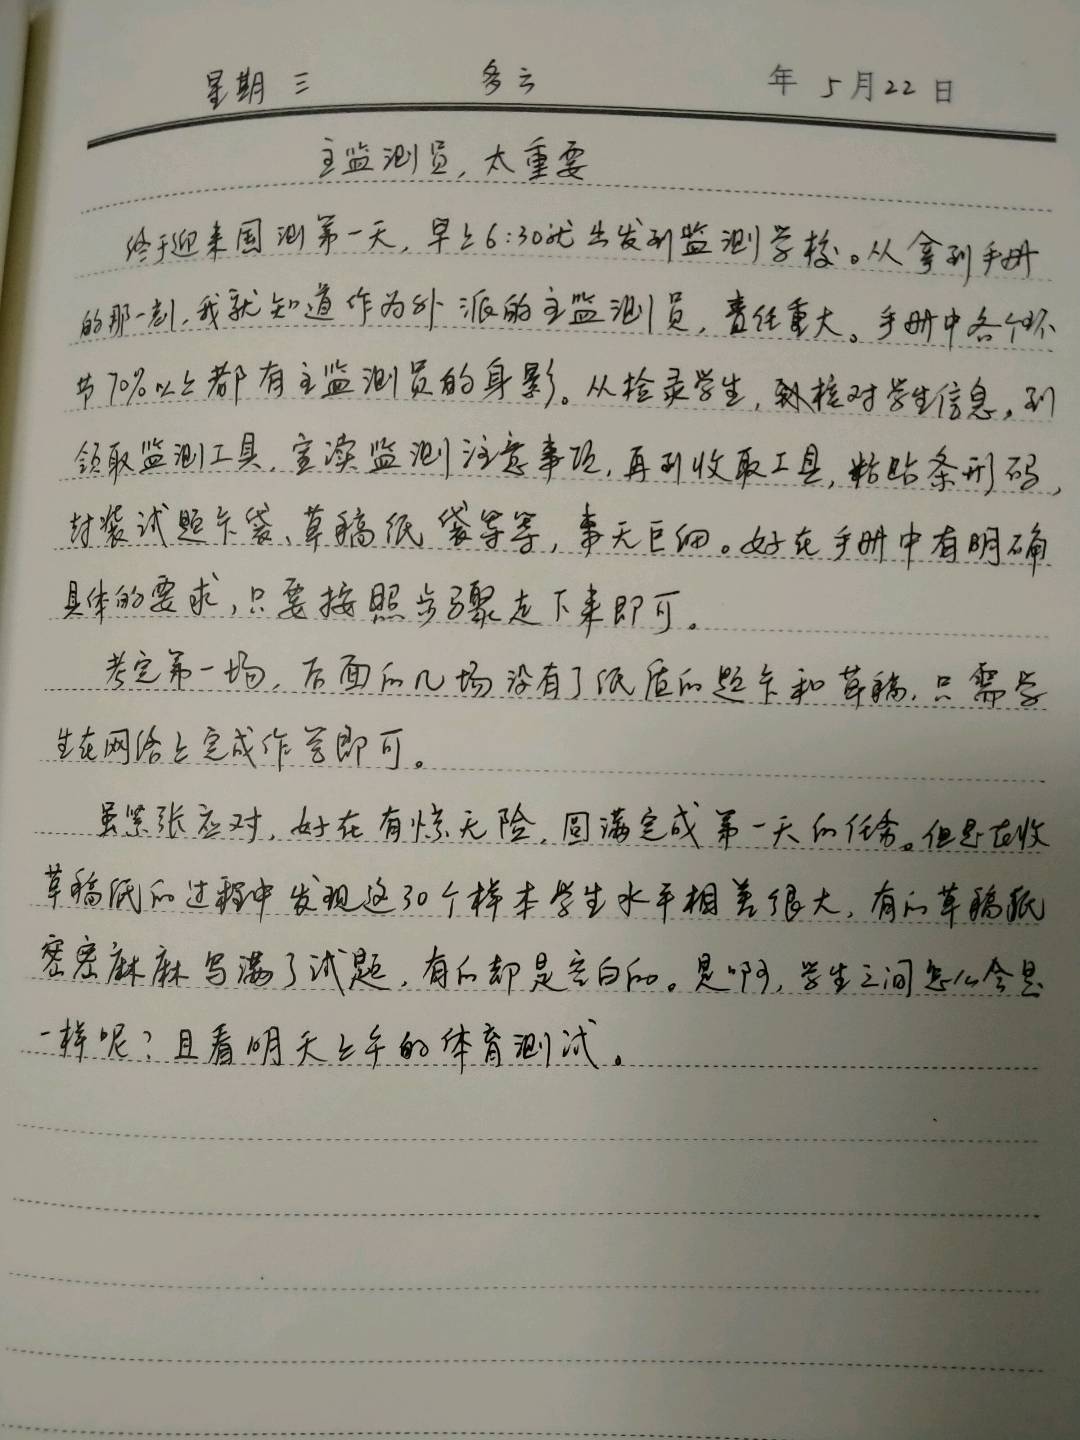 星期三 多云 年 5月22日
主监测员,太重要
终于迎来国测第一天,早上6:30就出发到监测学校。从拿到手册
的那一刻,我就知道作为外派的主监测员,责任重大。手册中各个环
节70%以上都有主监测员的身影。从检录学生,到核对学生信息,到
领取监测工具,宣读监测注意事项,再到收取工具,粘贴条形码,
封装试题卡袋、草稿纸袋等等,事无巨细。好在手册中有明确
具体的要求,只要按照步骤走下来即可。
考完第一场,后面的几场没有了纸质的题卡和草稿,只需学
生在网络上完成作答即可。
虽紧张应对,好在有惊无险,圆满完成第一天的任务。但是在收
草稿纸的过程中发现这30个样本学生水平相差很大,有的草稿纸
密密麻麻写满了试题,有的却是空白的。是啊,学生之间怎么会是
一样呢?且看明天上午的体育测试。